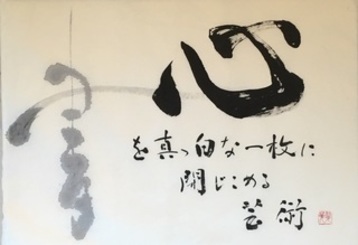 書
心
を真っ白な一枚に
閉じこめる
芸術